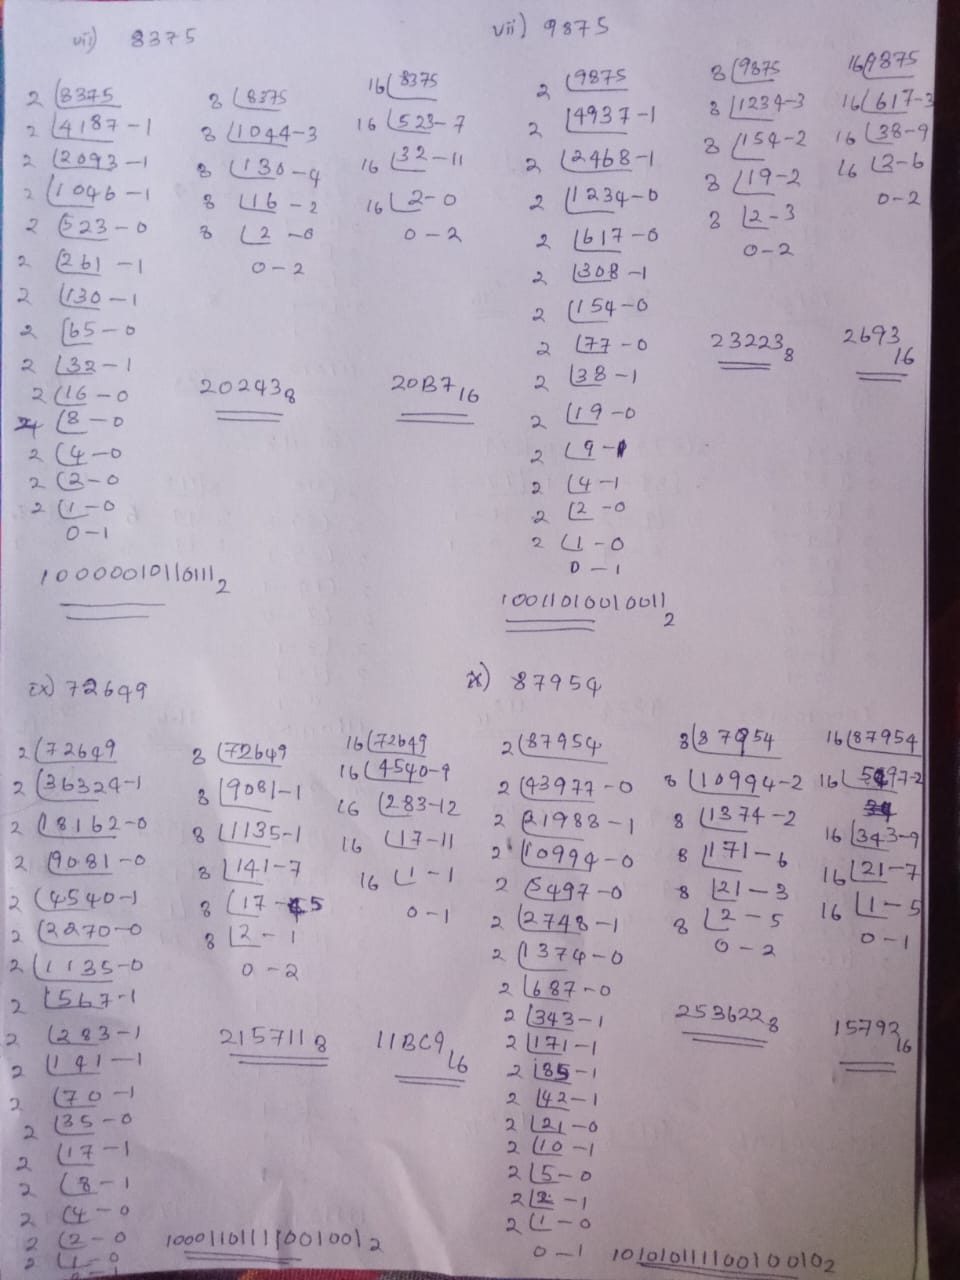 vii) 8375
2 8375
2 4187-1
2 2093-1
2 1046-1
2 523-0
2 261-1
2 130-1
2 65-0
2 32-1
2 16-0
2 8-0
2 4-0
2 2-0
2 1-0
0-1
10000010110111₂
8 8375
8 1044-3
8 130-4
8 16-2
8 2-0
0-2
20243₈
16 8375
16 523-7
16 32-11
16 2-0
0-2
20B7₁₆
vii) 9875
2 9875
2 4937-1
2 2468-1
2 1234-0
2 617-0
2 308-1
2 154-0
2 77-0
2 38-1
2 19-0
2 9-1
2 4-1
2 2-0
2 1-0
0-1
10011010010011₂
8 9875
8 1234-3
8 154-2
8 19-2
8 2-3
0-2
23223₈
16 9875
16 617-3
16 38-9
16 3-6
0-2
2693₁₆
ix) 72649
2 72649
2 36324-1
2 18162-0
2 9081-0
2 4540-1
2 2270-0
2 1135-0
2 567-1
2 283-1
2 141-1
2 70-1
2 35-0
2 17-1
2 8-1
2 4-0
2 2-0
2 1-0
10001101111001001₂
8 72649
8 9081-1
8 1135-1
8 141-7
8 17-5
8 2-1
0-2
215711₈
16 72649
16 4540-9
16 283-12
16 17-11
16 1-1
0-1
11BC9₁₆
x) 87954
2 87954
2 43977-0
2 21988-1
2 10994-0
2 5497-0
2 2748-1
2 1374-0
2 687-0
2 343-1
2 171-1
2 85-1
2 42-1
2 21-0
2 10-1
2 5-0
2 2-1
2 1-0
0-1
10101011110010010₂
8 87954
8 10994-2
8 1374-2
8 171-6
8 21-3
8 2-5
0-2
253622₈
16 87954
16 5497-2
16 343-9
16 21-7
16 1-5
0-1
15792₁₆